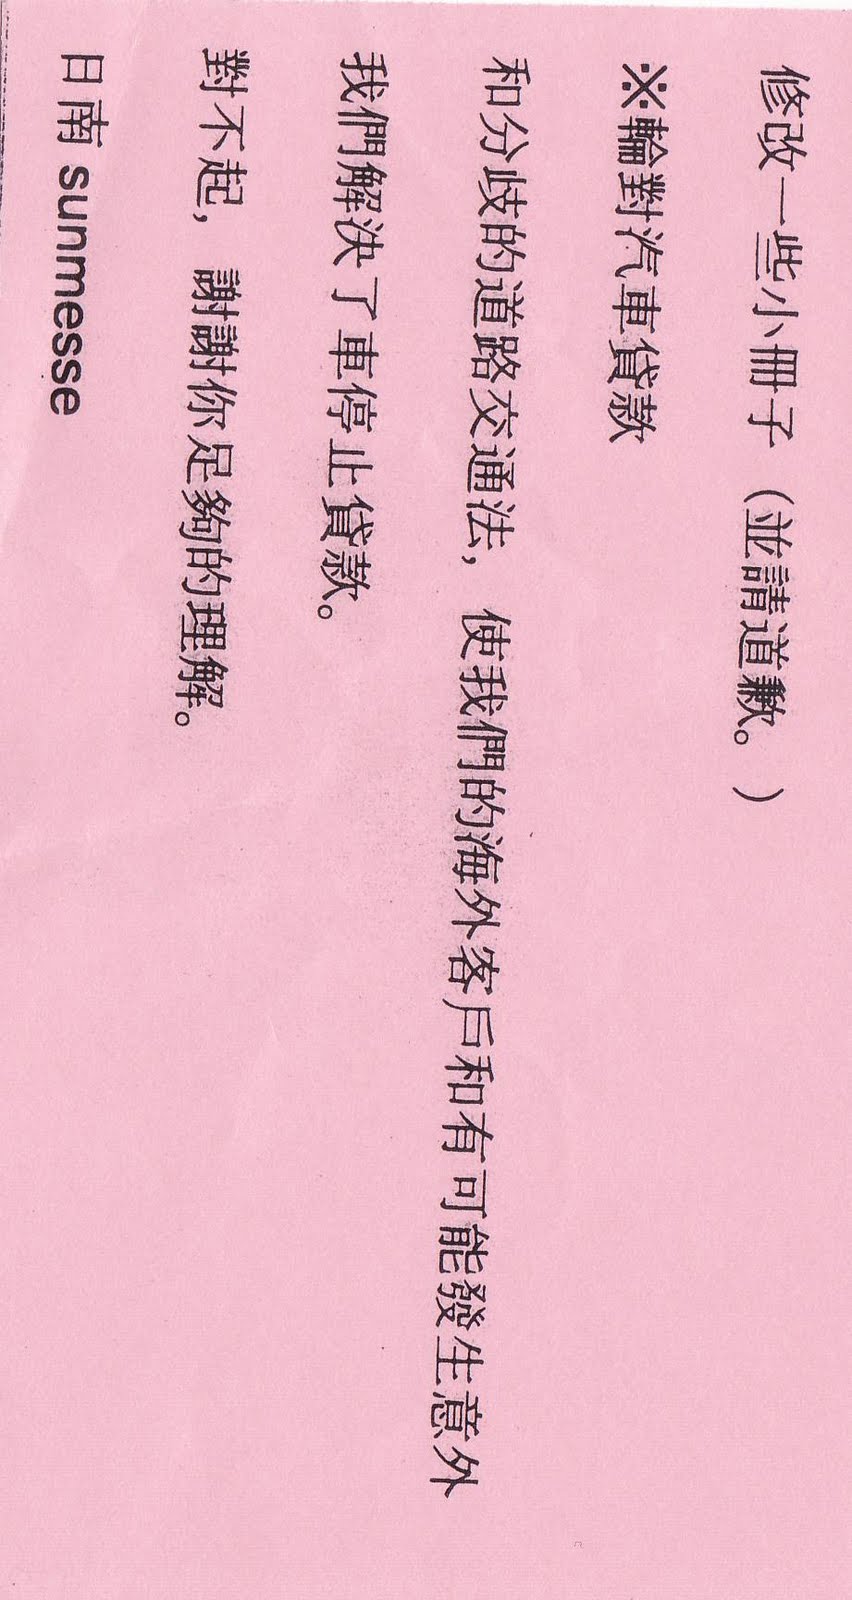 修改一些小冊子（並請道歉。）
※輪對汽車貸款
和分歧的道路交通法，使我們的海外客戶和有可能發生意外
我們解決了車停止貸款。
對不起，謝謝你足夠的理解。
日南 sunmesse